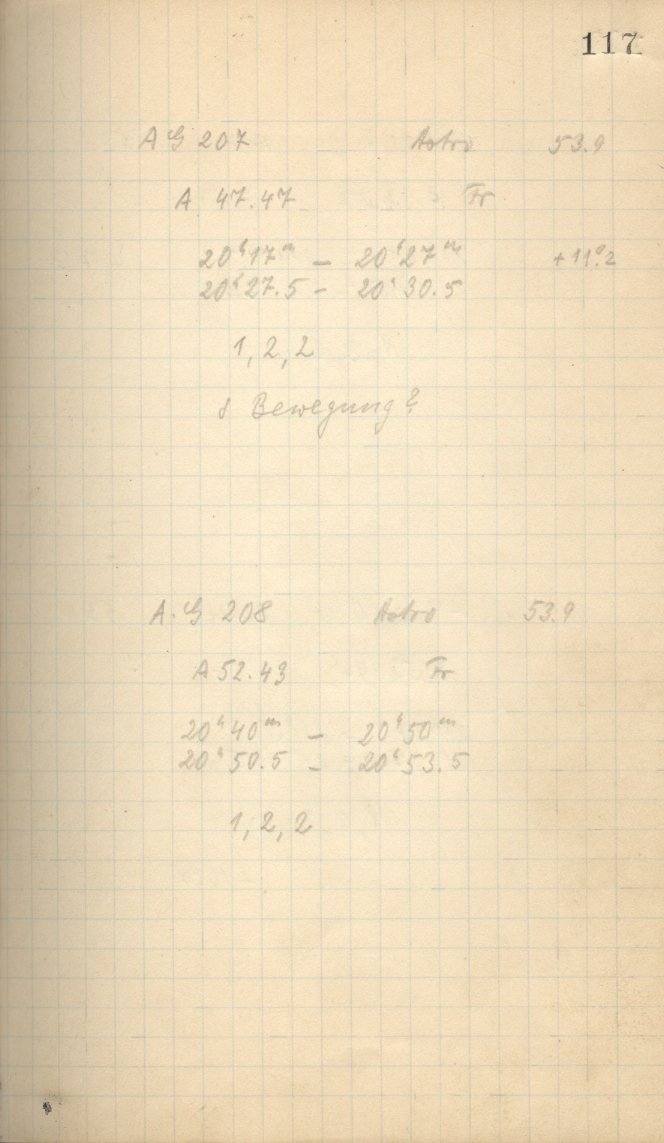 117
A G 207 Astro 53.9
A 47.47 Fr
20ʰ17ᵐ – 20ʰ27ᵐ +11°.2
20ʰ27.5 – 20ʰ30.5
1, 2, 2
Bewegung?
A.G 208 Astro 53.9
A 52.43 Fr
20ʰ40ᵐ – 20ʰ50ᵐ
20ʰ50.5 – 20ʰ53.5
1, 2, 2